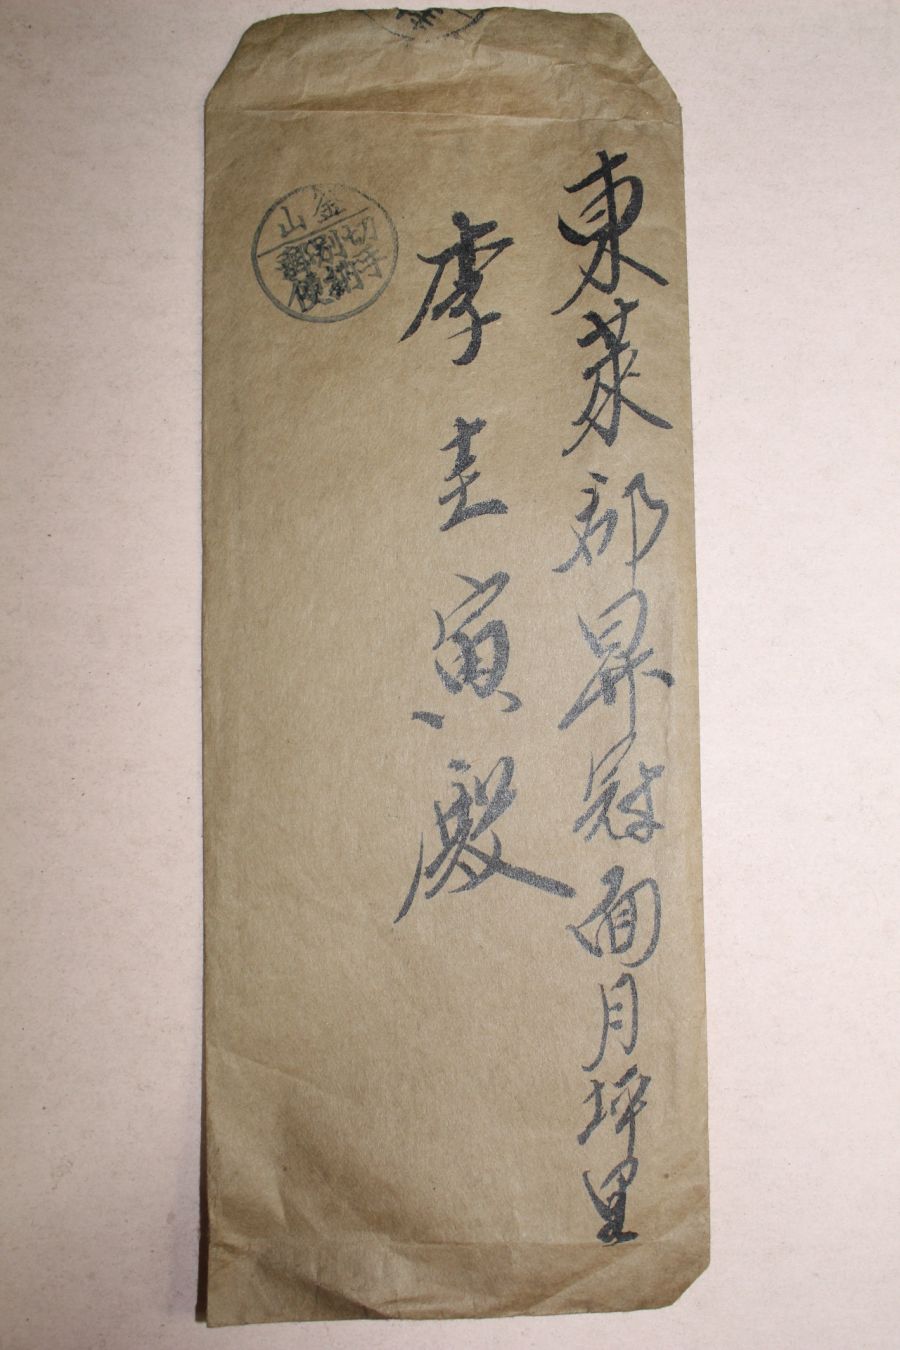 東萊郡鼎冠面月坪里
李圭寅殿
釜山
切手
別納
郵便